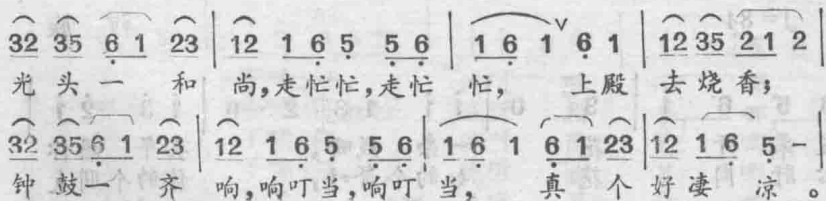 32 35 6 1 23 | 12 1 6 5 5 6 | 1 6 1 ∨ 6 1 | 12 35 2 1 2 |
光头一和尚,走忙忙,走忙忙,上殿去烧香;
32 35 6 1 23 | 12 1 6 5 5 6 | 1 6 1 6 1 23 | 12 1 6 5 - |
钟鼓一齐响,响叮当,响叮当,真个好凄凉。